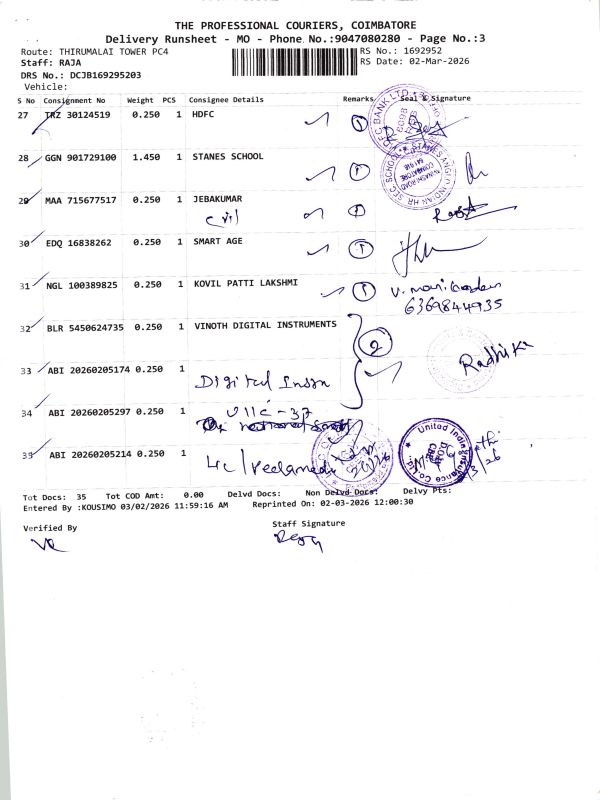 THE PROFESSIONAL COURIERS, COIMBATORE
Delivery Runsheet - MO - Phone No.:9047080280 - Page No.:3
Route: THIRUMALAI TOWER PC4 RS No.: 1692952
Staff: RAJA RS Date: 02-Mar-2026
DRS No.: DCJB169295203
Vehicle:
S No Consignment No Weight PCS Consignee Details Remarks Seal & Signature
27 TRZ 30124519 0.250 1 HDFC 1
28 GGN 901729100 1.450 1 STANES SCHOOL 1
29 MAA 715677517 0.250 1 JEBAKUMAR 1
Civil
30 EDQ 16838262 0.250 1 SMART AGE 1
31 NGL 100389825 0.250 1 KOVIL PATTI LAKSHMI 1
6369844935
32 BLR 5450624735 0.250 1 VINOTH DIGITAL INSTRUMENTS 2
Radhika
33 ABI 20260205174 0.250 1
Digital Insra
34 ABI 20260205297 0.250 1 UIIC - 37
35 ABI 20260205214 0.250 1
United India Insurance Co Ltd
Tot Docs: 35 Tot COD Amt: 0.00 Delvd Docs: Non Delvd Docs: Delvy Pts:
Entered By :KOUSIMO 03/02/2026 11:59:16 AM Reprinted On: 02-03-2026 12:00:30
Verified By Staff Signature